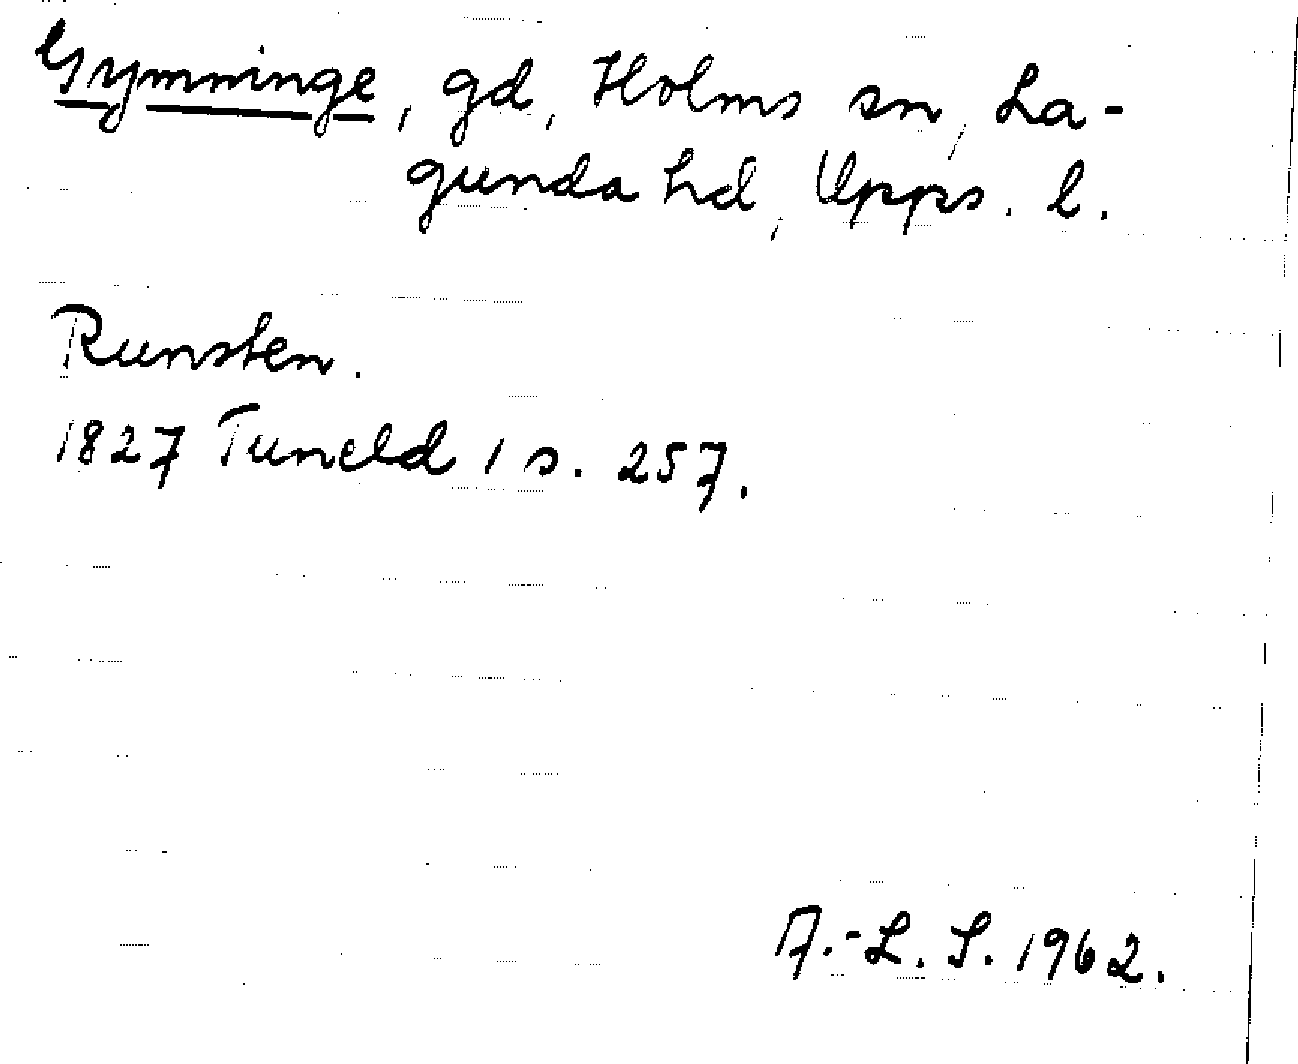 Gymninge, gd, Holms sn, La-
gunda hd, Upps. l.
Runsten.
1827 Tuneld 1 s. 257.
A.-L. S. 1962.